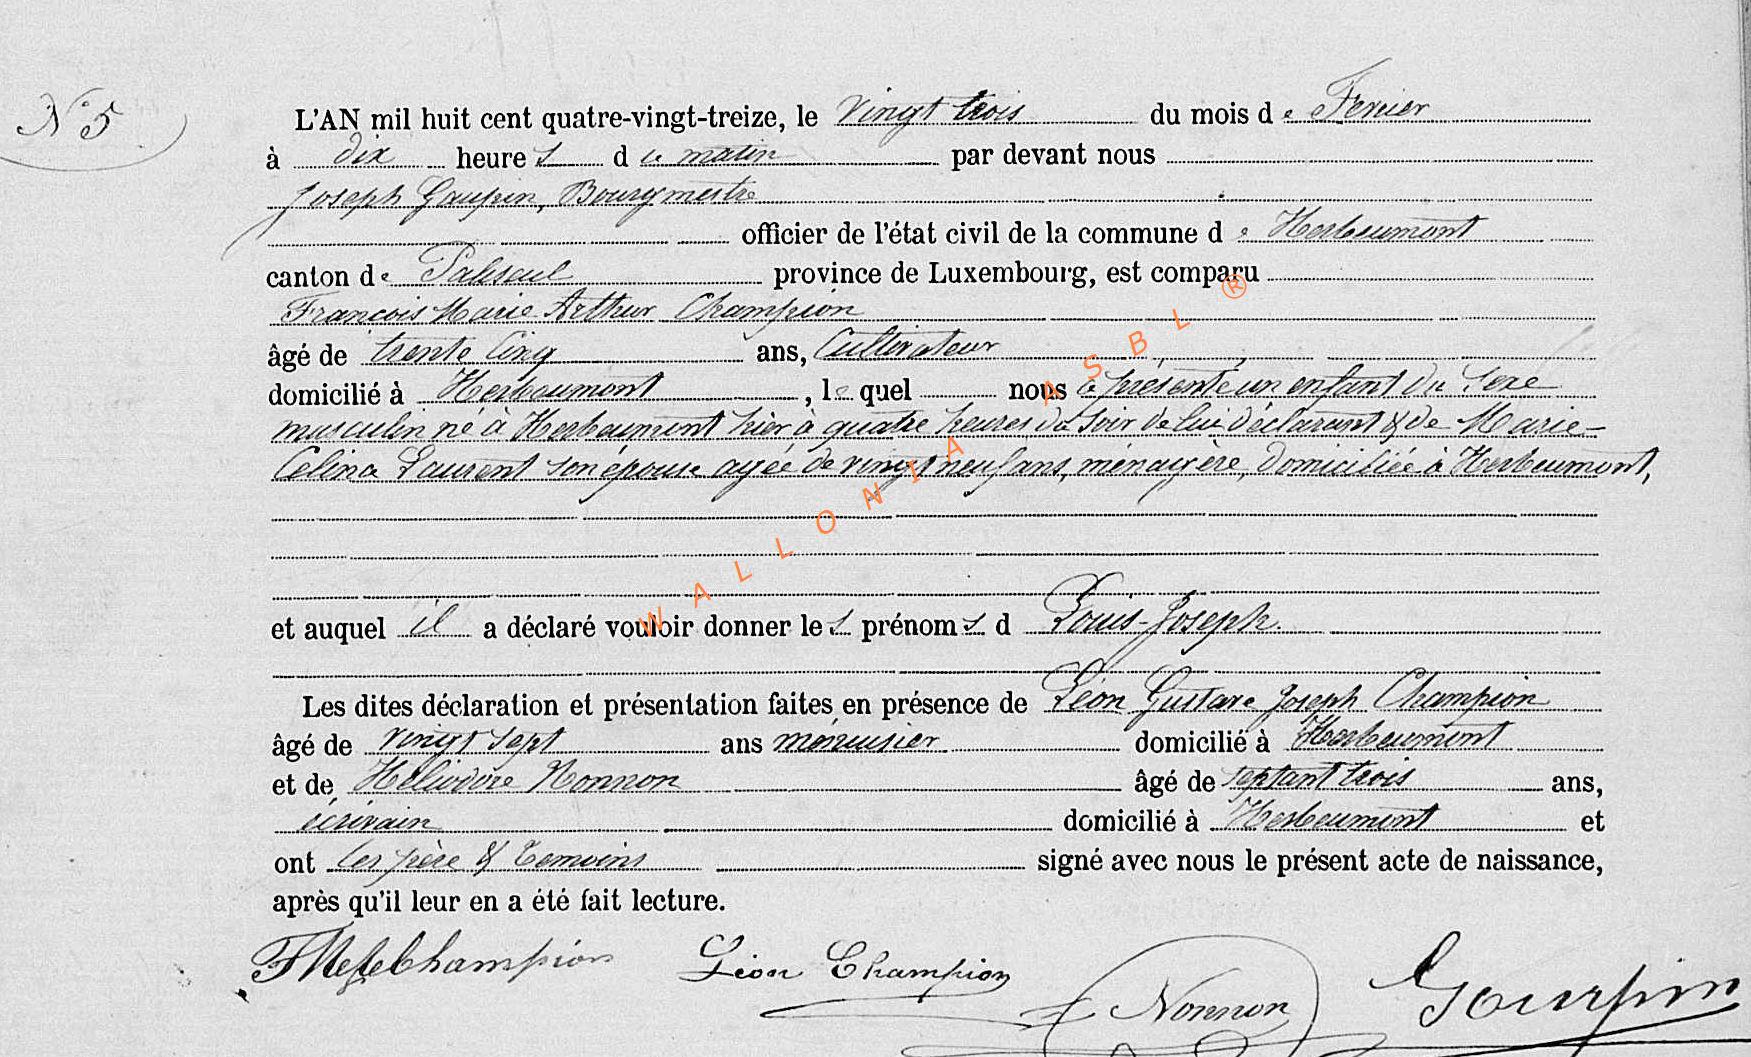 N° 5
L'AN mil huit cent quatre-vingt-treize, le vingt trois du mois de Fevrier
à dix heures du matin par devant nous
Joseph Goupin, Bourgmestre
officier de l'état civil de la commune de Herbeumont
canton de Paliseul province de Luxembourg, est comparu
François Marie Arthur Champion
âgé de trente cinq ans, Cultivateur
domicilié à Herbeumont, lequel nous a présenté un enfant du sexe
masculin né à Herbeumont hier à quatre heures du soir de lui déclarant & de Marie-
Celina Laurent son épouse agée de vingt neuf ans, ménagère, domiciliée à Herbeumont,
et auquel il a déclaré vouloir donner les prénoms d Louis-Joseph.
Les dites déclaration et présentation faites en présence de Léon Gustave Joseph Champion
âgé de vingt sept ans menuisier domicilié à Herbeumont
et de Héliodore Nonnon âgé de septant trois ans,
écrivain domicilié à Herbeumont et
ont les père & temoins signé avec nous le présent acte de naissance,
après qu'il leur en a été fait lecture.
Champion Léon Champion Nonnon Goupin
WALLONIA ASBL ®